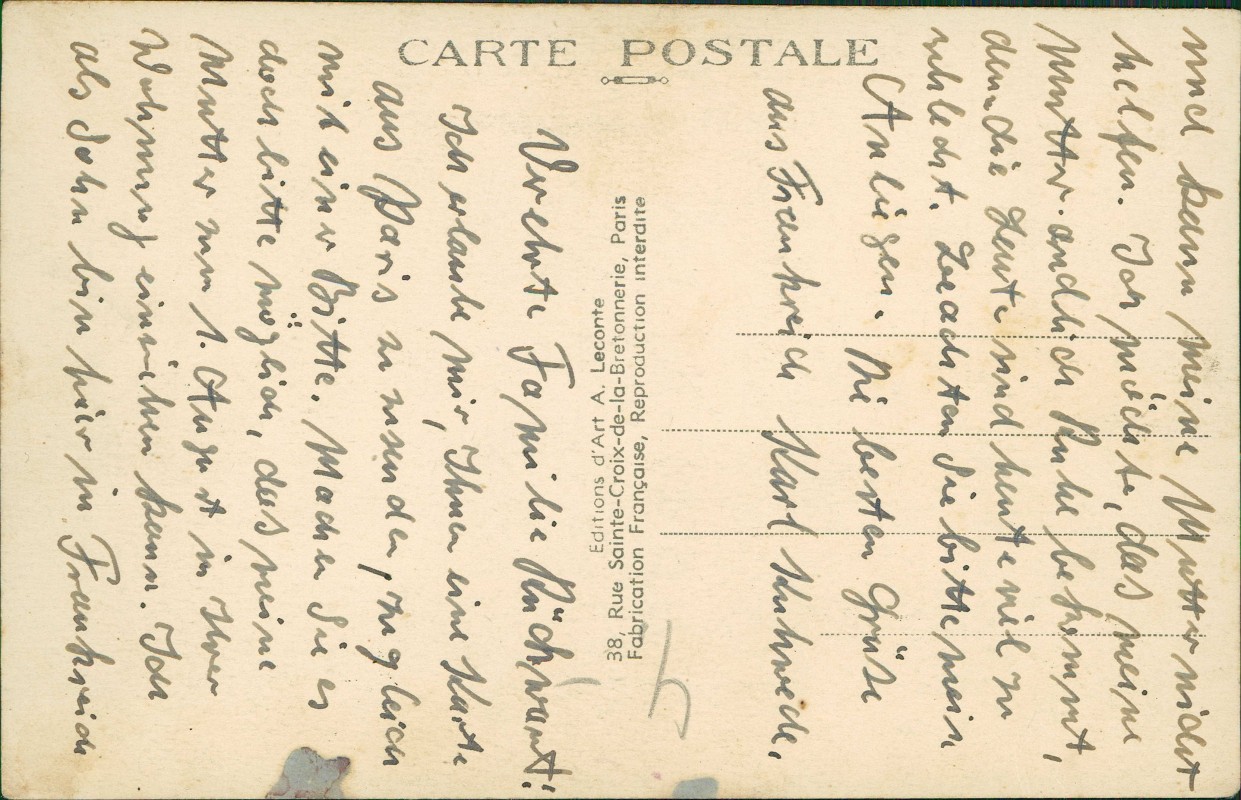 CARTE POSTALE
Editions d'Art A. Leconte
38, Rue Sainte-Croix-de-la-Bretonnerie, Paris
Fabrication Française, Reproduction interdite
Verehrte Familie
Ich erlaube mir, Ihnen eine Karte
aus Paris zu senden, zugleich
mit einer Bitte. Machen Sie es
doch bitte möglich, das meine
Mutter zum 1. August in Ihrer
Wohnung einziehen kann. Ich
als Sohn bin hier in Frankreich
und kann meine Mutter nicht
helfen. Ich möchte, das meine
Mutter endlich Ruhe bekommt,
denn die Leute sind heute viel zu
schlecht. Beachten Sie bitte mein
Anliegen. Die besten Grüße
aus Frankreich Karl
5